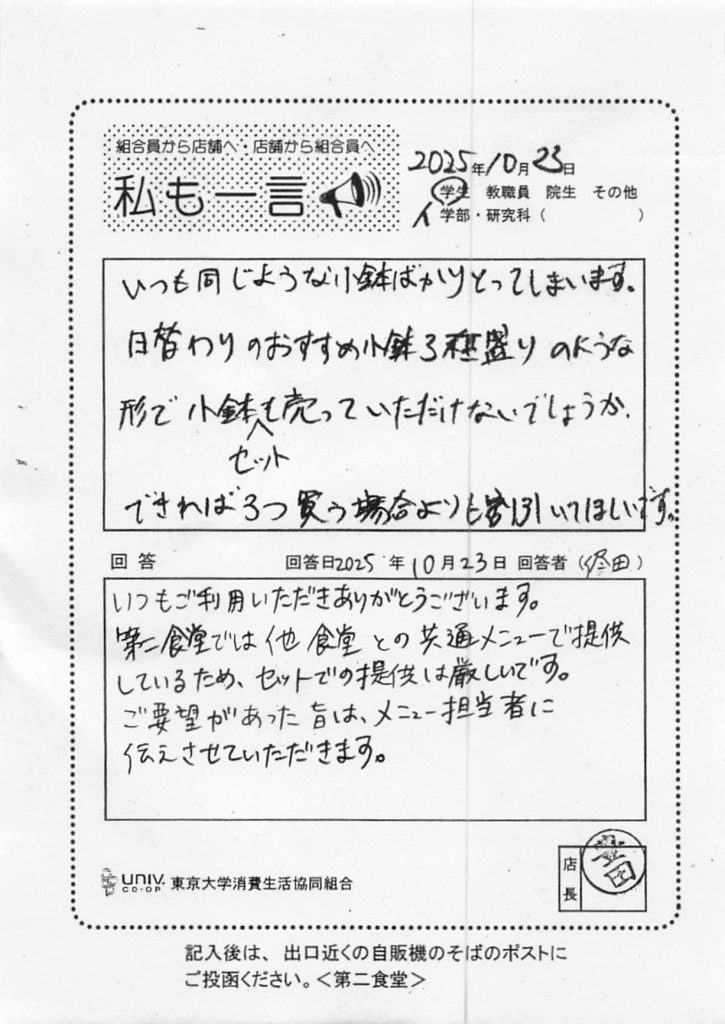 組合員から店舗へ・店舗から組合員へ
私も一言
2025年10月23日
学生 教職員 院生 その他
学部・研究科（ ）
いつも同じような小鉢ばかりとってしまいます。
日替わりのおすすめ小鉢3種盛りのような
形で小鉢セットも売っていただけないでしょうか.
できれば3つ買う場合よりも割引いてほしいです。
回答 回答日2025年10月23日 回答者（ 田）
いつもご利用いただきありがとうございます。
第二食堂では他食堂との共通メニューで提供
しているため、セットでの提供は厳しいです。
ご要望があった旨は、メニュー担当者に
伝えさせていただきます。
UNIV.
CO-OP
東京大学消費生活協同組合
店長
記入後は、出口近くの自販機のそばのポストに
ご投函ください。＜第二食堂＞